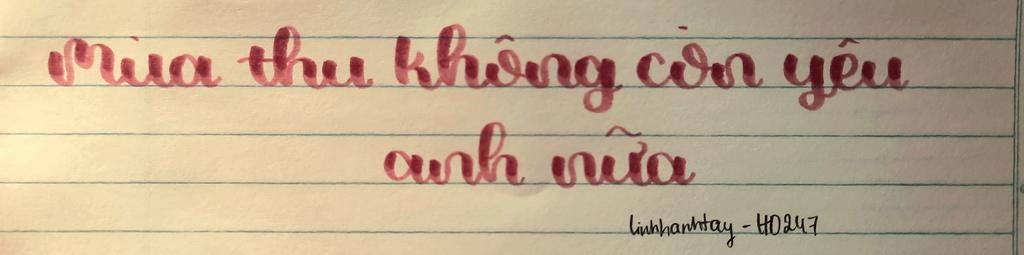 Mùa thu không còn yêu
anh nữa
linhhanhtay - HD247